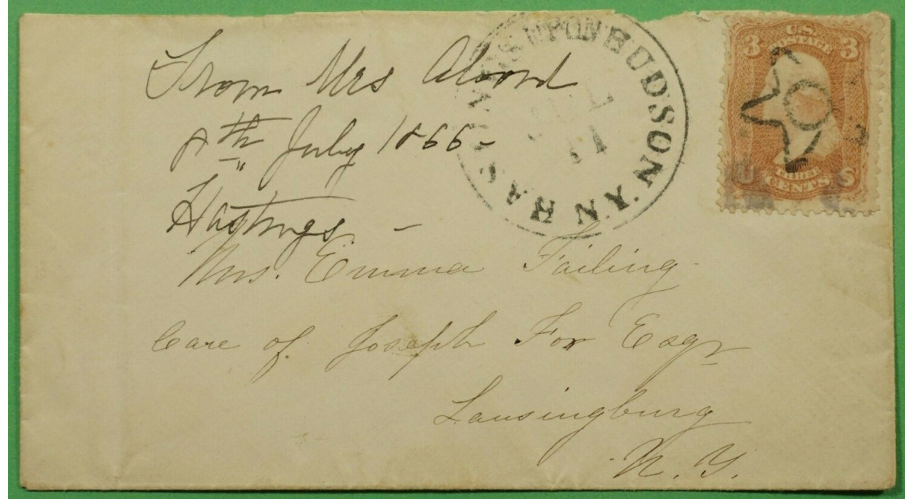 From Mrs Alvord
8th July 1866
Hastings. -
HASTINGS UPON HUDSON N.Y.
JUL
11
3 U.S. POSTAGE 3
THREE
CENTS
Mrs. Emma Failing
Care of Joseph Fox Esqr
Lansingburg
N. Y.